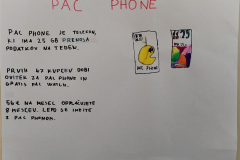 PAC PHONE
PAC PHONE JE TELEFON,
KI IMA 25 GB PRENOSA
PODATKOV NA TEDEN.
PRVIH 67 KUPCEV DOBI
OVITEK ZA PAC PHONE IN
GRATIS PAC WATCH.
56€ NA MESEC ODPLAČUJETE
8 MESECEV. LEPO SE IMEJTE
Z PAC PHONOM.
PAC PHONE